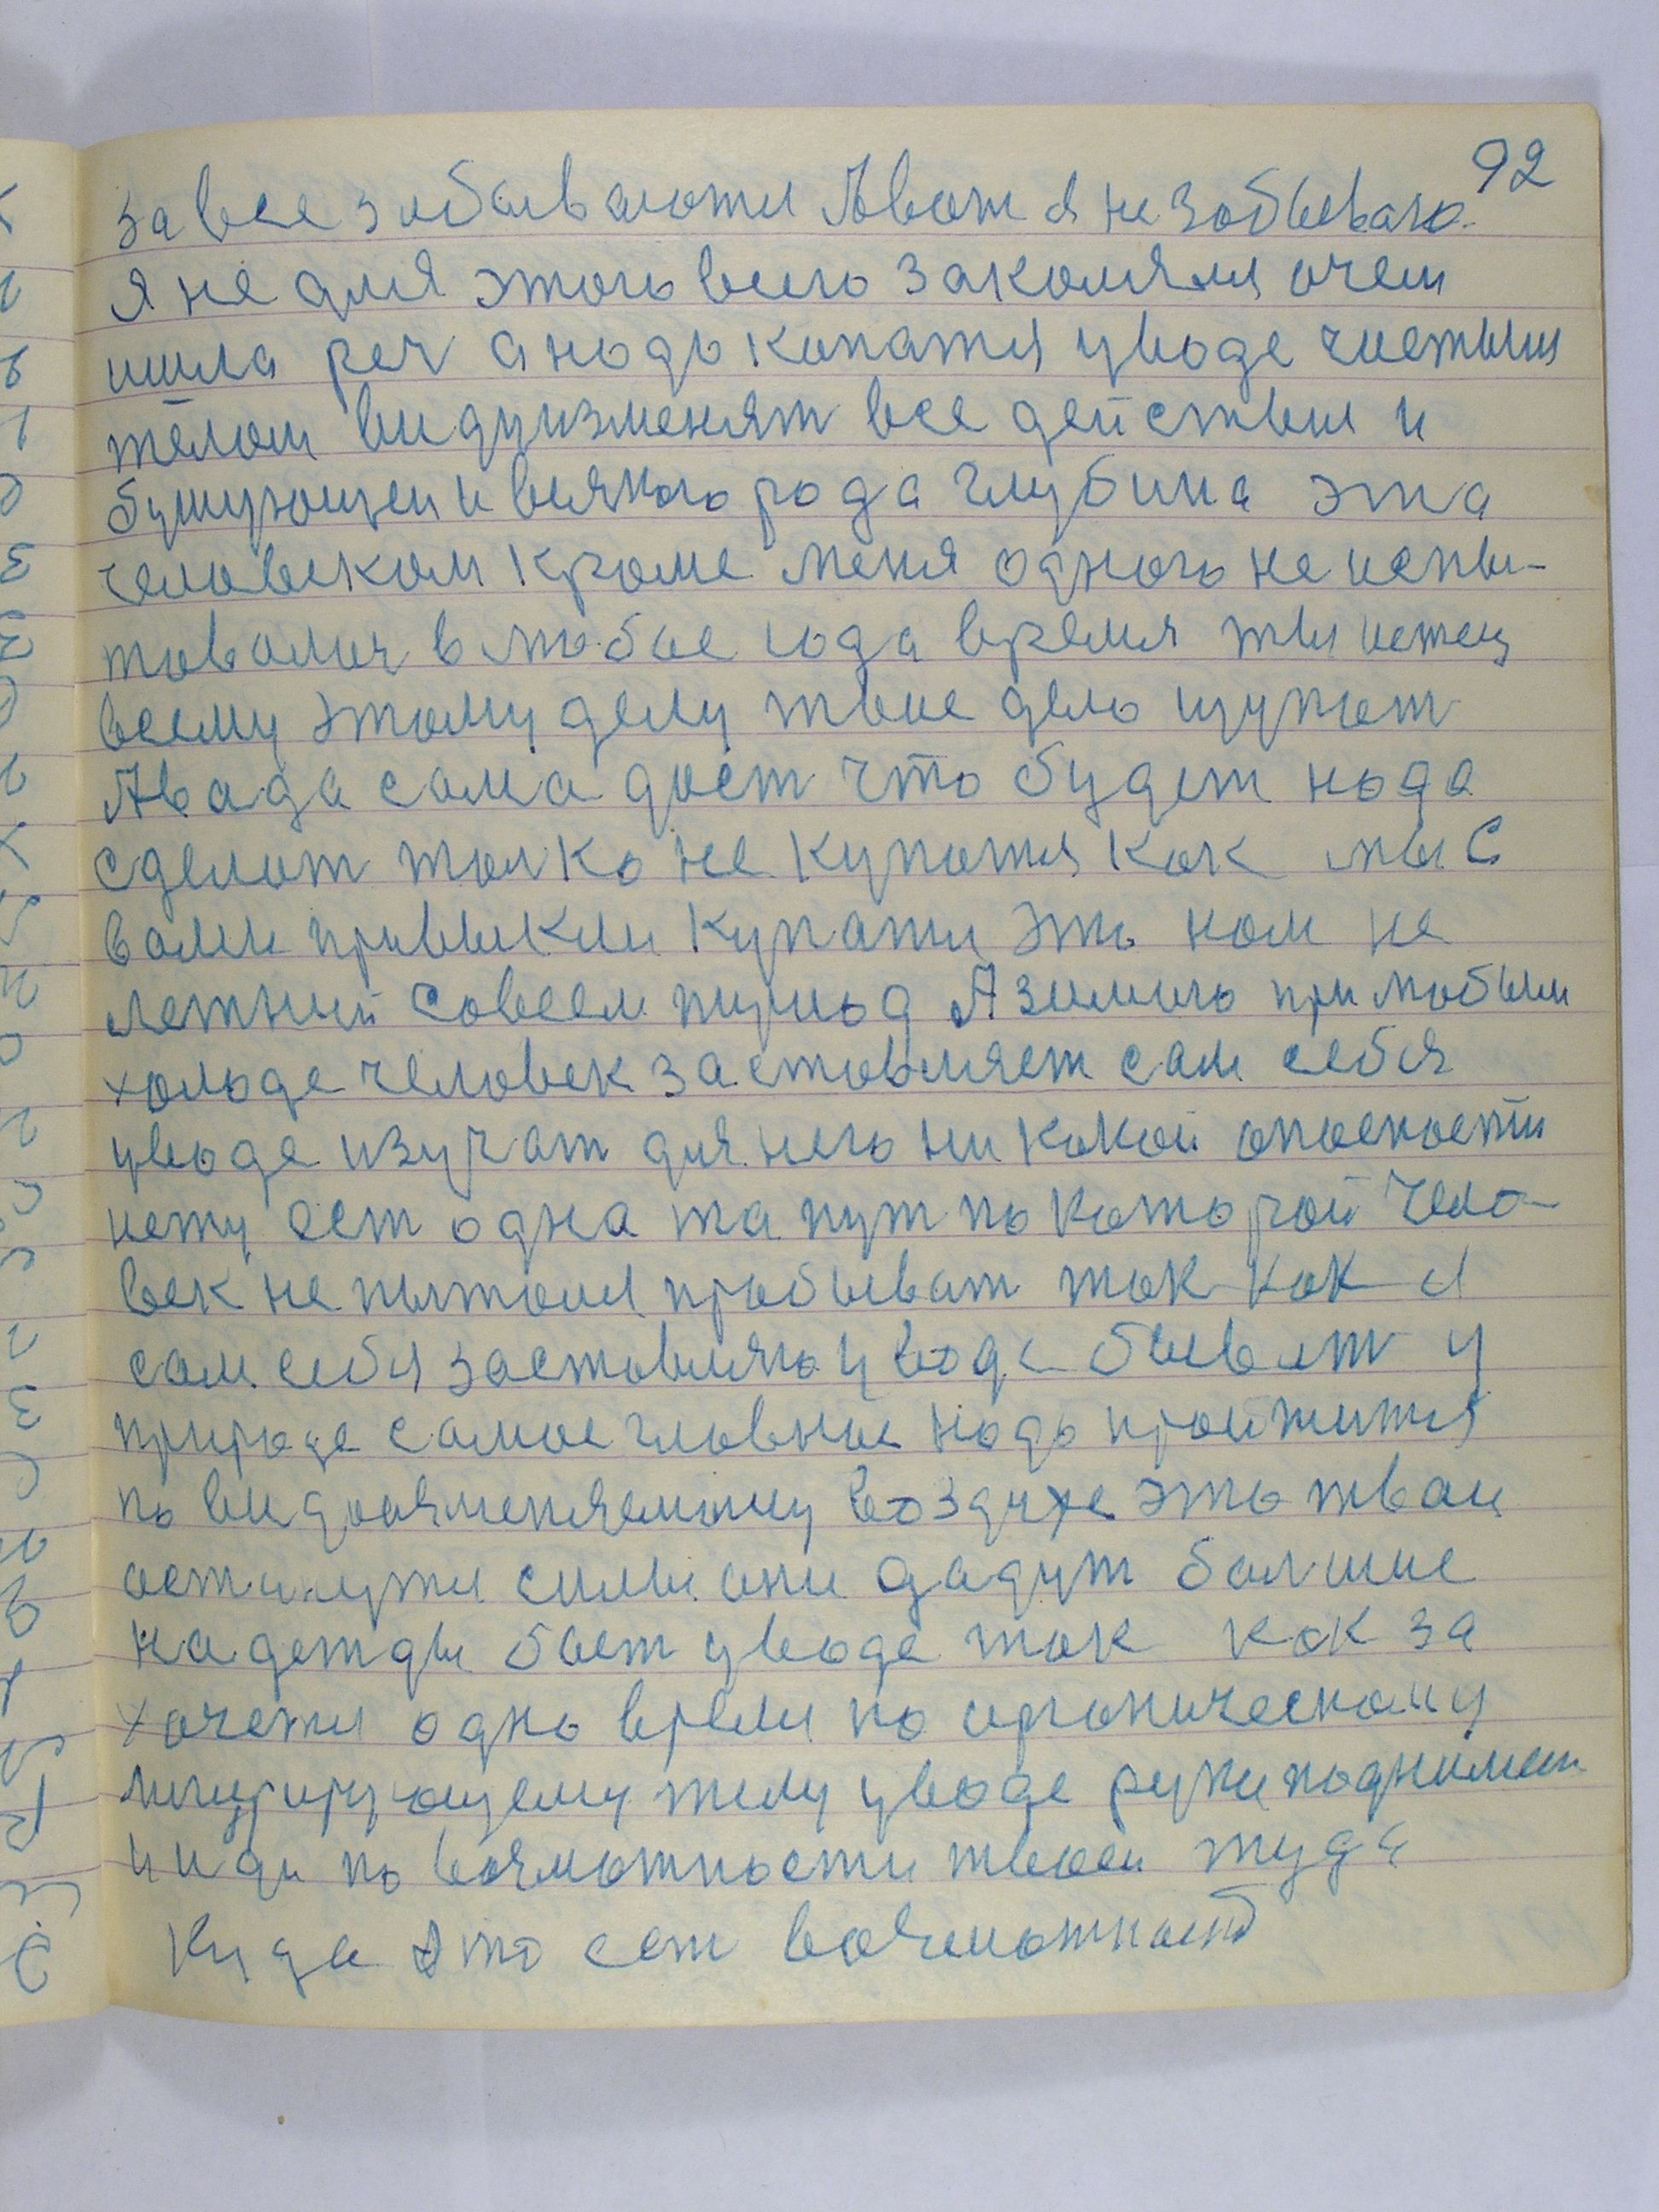 92
за все забываются Авот я не забываю.
я не для этого всего закомялся очем
ишла реч а нодо копатся уводе чистым
телом видуизменят все действия и
бушующеи и всякого рода глубина эта
человеком кроме меня одного не испы-
товалися в любое года время ты истец
всему этому делу твое дело щупат
Авада сама дост что будет нада
сделот толко не купатся как мы с
вами привыкли купатся это ном не
летный совсем пириод А зимиго при любым
холоде человек застовляет сам себя
уводе изучат для него никокой опосности
нету ест одна та пут по которой чело-
век не пытался пробыват ток как я
сам себя застовляю уводе бывает у
природе самое гловное нодо пройтится
по видоизменяемому воздухе это твои
остануться силы они дадут болшие
надежды боет уводе ток как за
хочется одно время по органическому
тилу уводе руки поднимет
и иди по возможности твоей туда
Куда это ест возможност